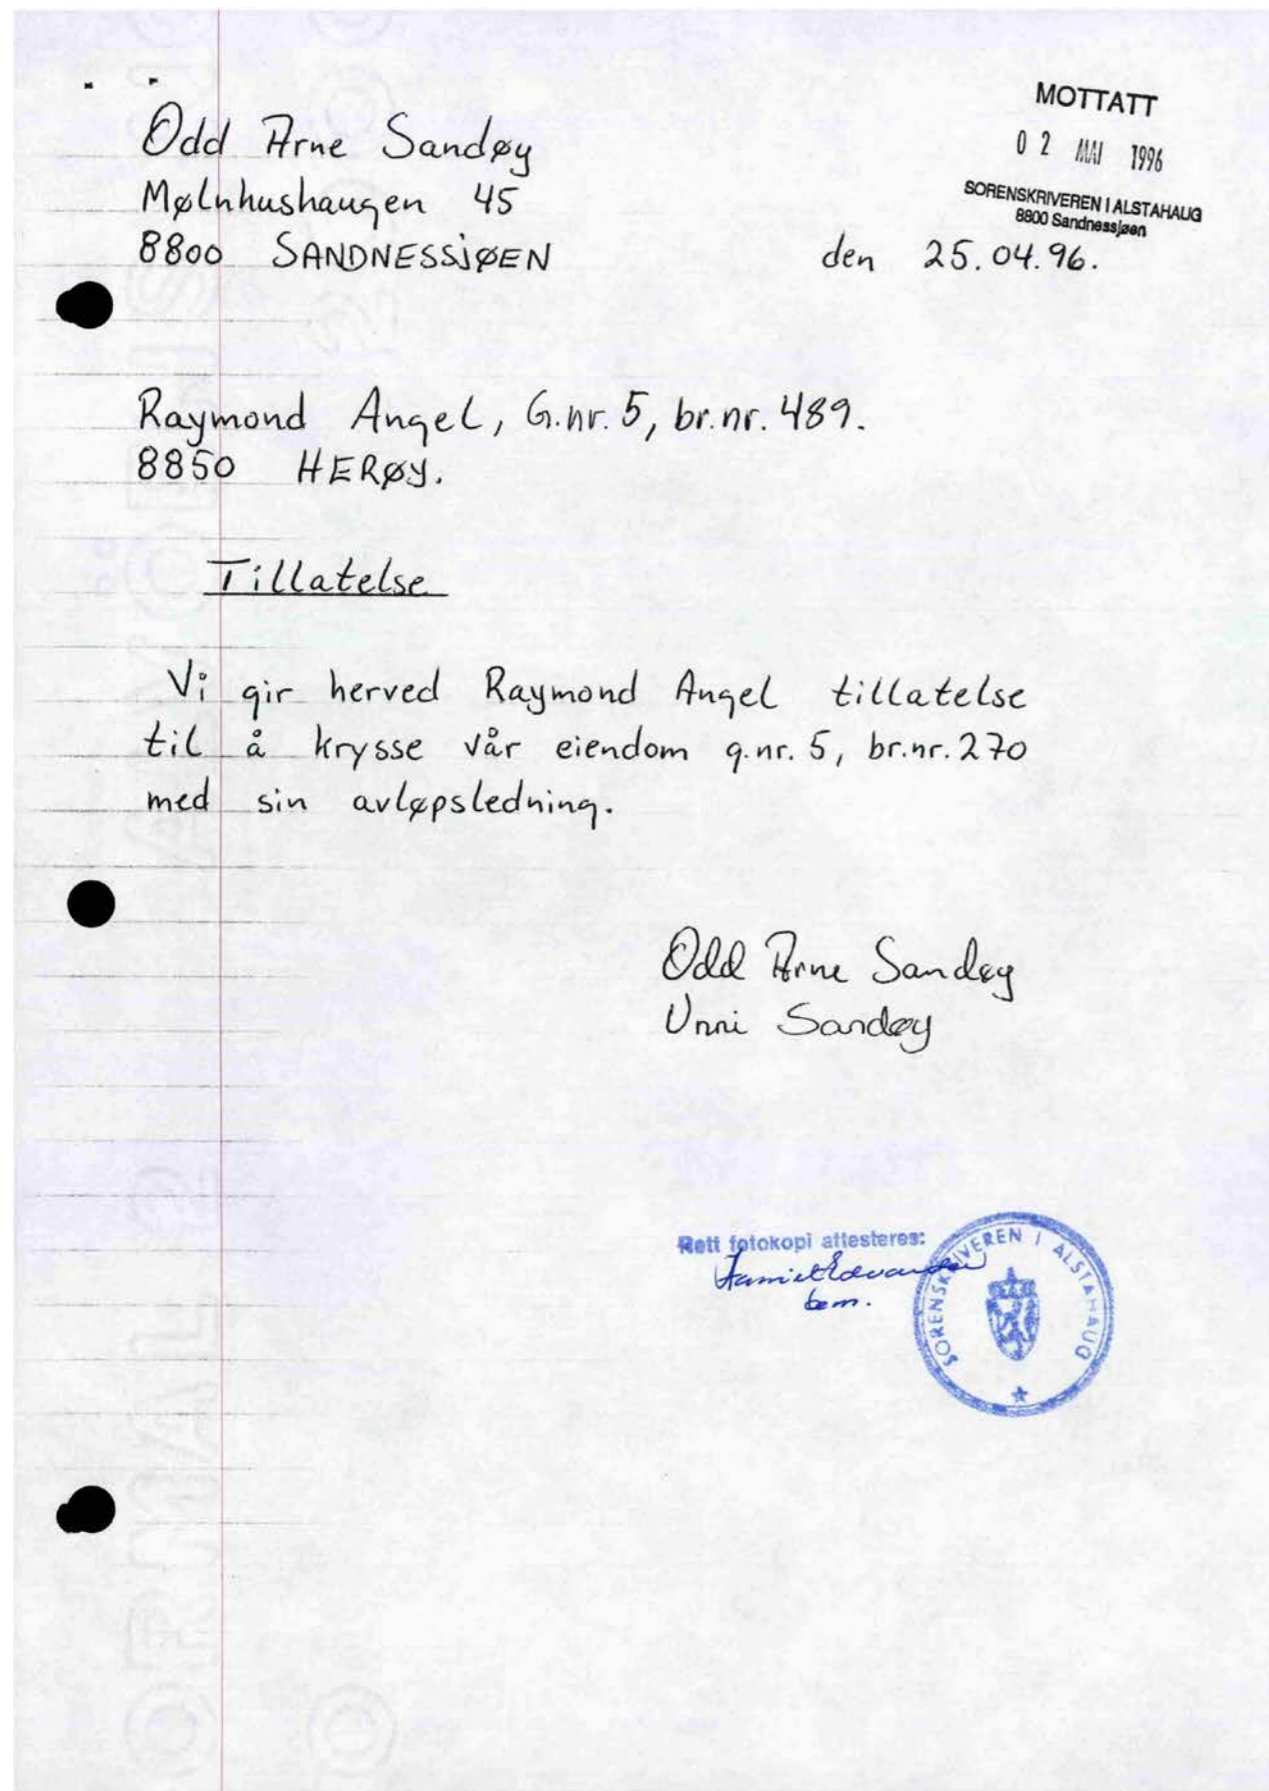 Odd Arne Sandøy
Mølnhushaugen 45
8800 SANDNESSJØEN
MOTTATT
02 MAI 1996
SORENSKRIVEREN I ALSTAHAUG
8800 Sandnessjøen
den 25.04.96.
Raymond Angel, G.nr. 5, br.nr. 489.
8850 HERØY.
Tillatelse
Vi gir herved Raymond Angel tillatelse
til å krysse vår eiendom g.nr. 5, br.nr. 270
med sin avløpsledning.
Odd Arne Sandøy
Unni Sandøy
Rett fotokopi attesteres:
bem.
SORENSKRIVEREN I ALSTAHAUG